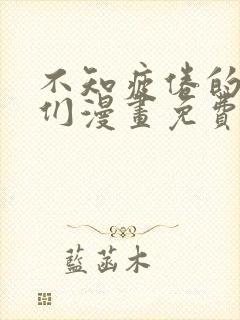 不知疲倦的
们漫畫免費
藍菡木